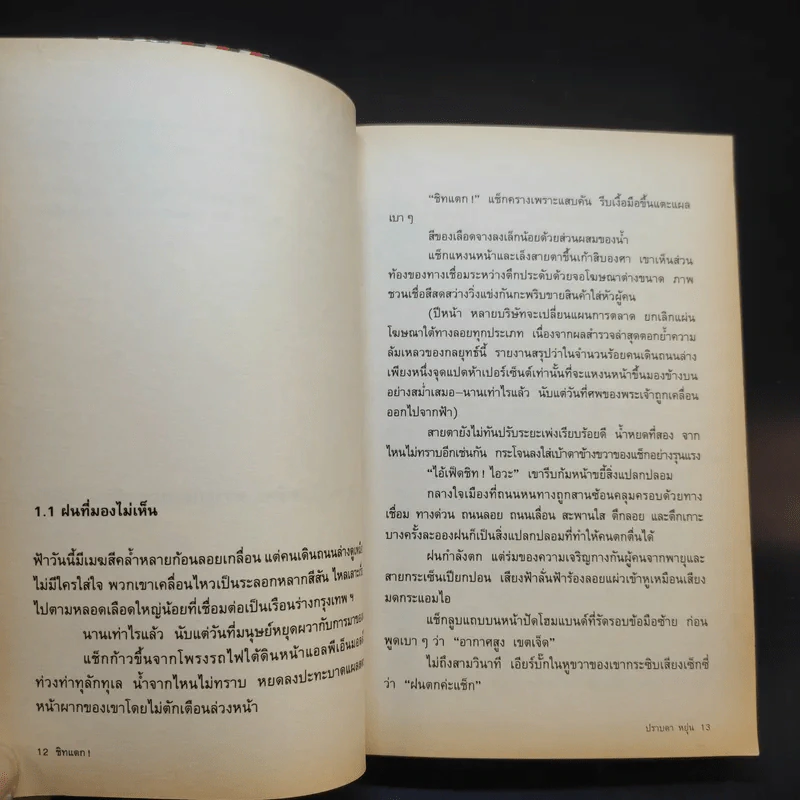 1.1 ฝนที่มองไม่เห็น
ฟ้าวันนี้มีเมฆสีคล้ำหลายก้อนลอยเกลื่อน แต่คนเดินถนนล่าง
ไม่มีใครใส่ใจ พวกเขาเคลื่อนไหวเป็นระลอกหลากสีสัน
ไปตามหลอดเลือดใหญ่น้อยที่เชื่อมต่อเป็นเรือนร่างกรุงเทพฯ
นานเท่าไรแล้ว นับแต่วันที่มนุษย์หยุดผวากับการมา
แช็กก้าวขึ้นจากโพรงรถไฟใต้ดินหน้า
ท่วงท่าทุลักทุเล น้ำจากไหนไม่ทราบ หยดลงปะทะบาดแผล
หน้าผากของเขาโดยไม่ตักเตือนล่วงหน้า
12 ชิทแตก!
“ชิทแตก!” แช็กครางเพราะแสบคัน รีบเงื้อมือขึ้นแตะแผล
เบาๆ
สีของเลือดจางลงเล็กน้อยด้วยส่วนผสมของน้ำ
แช็กแหงนหน้าและเล็งสายตาขึ้นเก้าสิบองศา เขาเห็นส่วน
ท้องของทางเชื่อมระหว่างตึกประดับด้วยจอโฆษณาต่างขนาด ภาพ
ชวนเชื่อสีสดสว่างวิ่งแข่งกันกะพริบขายสินค้าใส่หัวผู้คน
(ปีหน้า หลายบริษัทจะเปลี่ยนแผนการตลาด ยกเลิกแผ่น
โฆษณาใต้ทางลอยทุกประเภท เนื่องจากผลสำรวจล่าสุดตอกย้ำความ
ล้มเหลวของกลยุทธ์นี้ รายงานสรุปว่าในจำนวนร้อยคนเดินถนนล่าง
เพียงหนึ่งจุดแปดห้าเปอร์เซ็นต์เท่านั้นที่จะแหงนหน้าขึ้นมองข้างบน
อย่างสม่ำเสมอ–นานเท่าไรแล้ว นับแต่วันที่ศพของพระเจ้าถูกเคลื่อน
ออกไปจากฟ้า)
สายตายังไม่ทันปรับระยะเพ่งเรียบร้อยดี น้ำหยดที่สอง จาก
ไหนไม่ทราบอีกเช่นกัน กระโจนลงใส่เบ้าตาข้างขวาของแช็กอย่างรุนแรง
“ไอ้เฟ็ตชิท! ไอวะ” เขารีบก้มหน้าขยี้สิ่งแปลกปลอม
กลางใจเมืองที่ถนนหนทางถูกสานซ้อนคลุมครอบด้วยทาง
เชื่อม ทางด่วน ถนนลอย ถนนเลื่อน สะพานใส ตึกลอย และตึกเกาะ
บางครั้งละอองฝนก็เป็นสิ่งแปลกปลอมที่ทำให้คนตกตื่นได้
ฝนกำลังตก แต่ร่มของความเจริญกางกันผู้คนจากพายุและ
สายกระเซ็นเปียกปอน เสียงฟ้าลั่นฟ้าร้องลอยแผ่วเข้าหูเหมือนเสียง
มดกระแอมไอ
แช็กลูบแถบบนหน้าปัดโฮมแบนด์ที่รัดรอบข้อมือซ้าย ก่อน
พูดเบาๆ ว่า “อากาศสูง เขตเจ็ด”
ไม่ถึงสามวินาที เอียร์บั๊กในหูขวาของเขากระซิบเสียงเซ็กซี่
ว่า “ฝนตกค่ะแช็ก”
ปราบดา หยุ่น 13